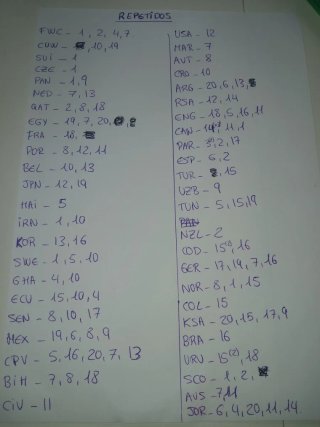 REPETIDOS
FWC - 1, 2, 4, 7
CUW - 10, 19
SUI - 1
CZE - 1
PAN - 1, 9
NED - 7, 13
QAT - 2, 8, 18
EGY - 19, 7, 20, 2
FRA - 18,
POR - 8, 12, 11
BEL - 10, 13
JPN - 12, 19
HAI - 5
IRN - 1, 10
KOR - 13, 16
SWE - 1, 5, 10
GHA - 4, 10
ECU - 15, 10, 4
SEN - 8, 10, 17
MEX - 19, 6, 8, 9
CPV - 5, 16, 20, 7, 13
BIH - 7, 8, 18
CIV - 11
USA - 12
MAR - 7
AUT - 8
CRO - 10
ARG - 20, 6, 13,
RSA - 12, 14
ENG - 18, 5, 16, 11
CAN - 11, 1
PAR - 2, 17
ESP - 6, 2
TUR - 15
UZB - 9
TUN - 5, 15, 19
NZL - 2
COD - 15, 16
GER - 17, 19, 7, 16
NOR - 8, 1, 15
COL - 15
KSA - 20, 15, 17, 9
BRA - 16
URU - 15(2), 18
SCO - 1, 2,
AUS - 7, 11
JOR - 6, 4, 20, 11, 14